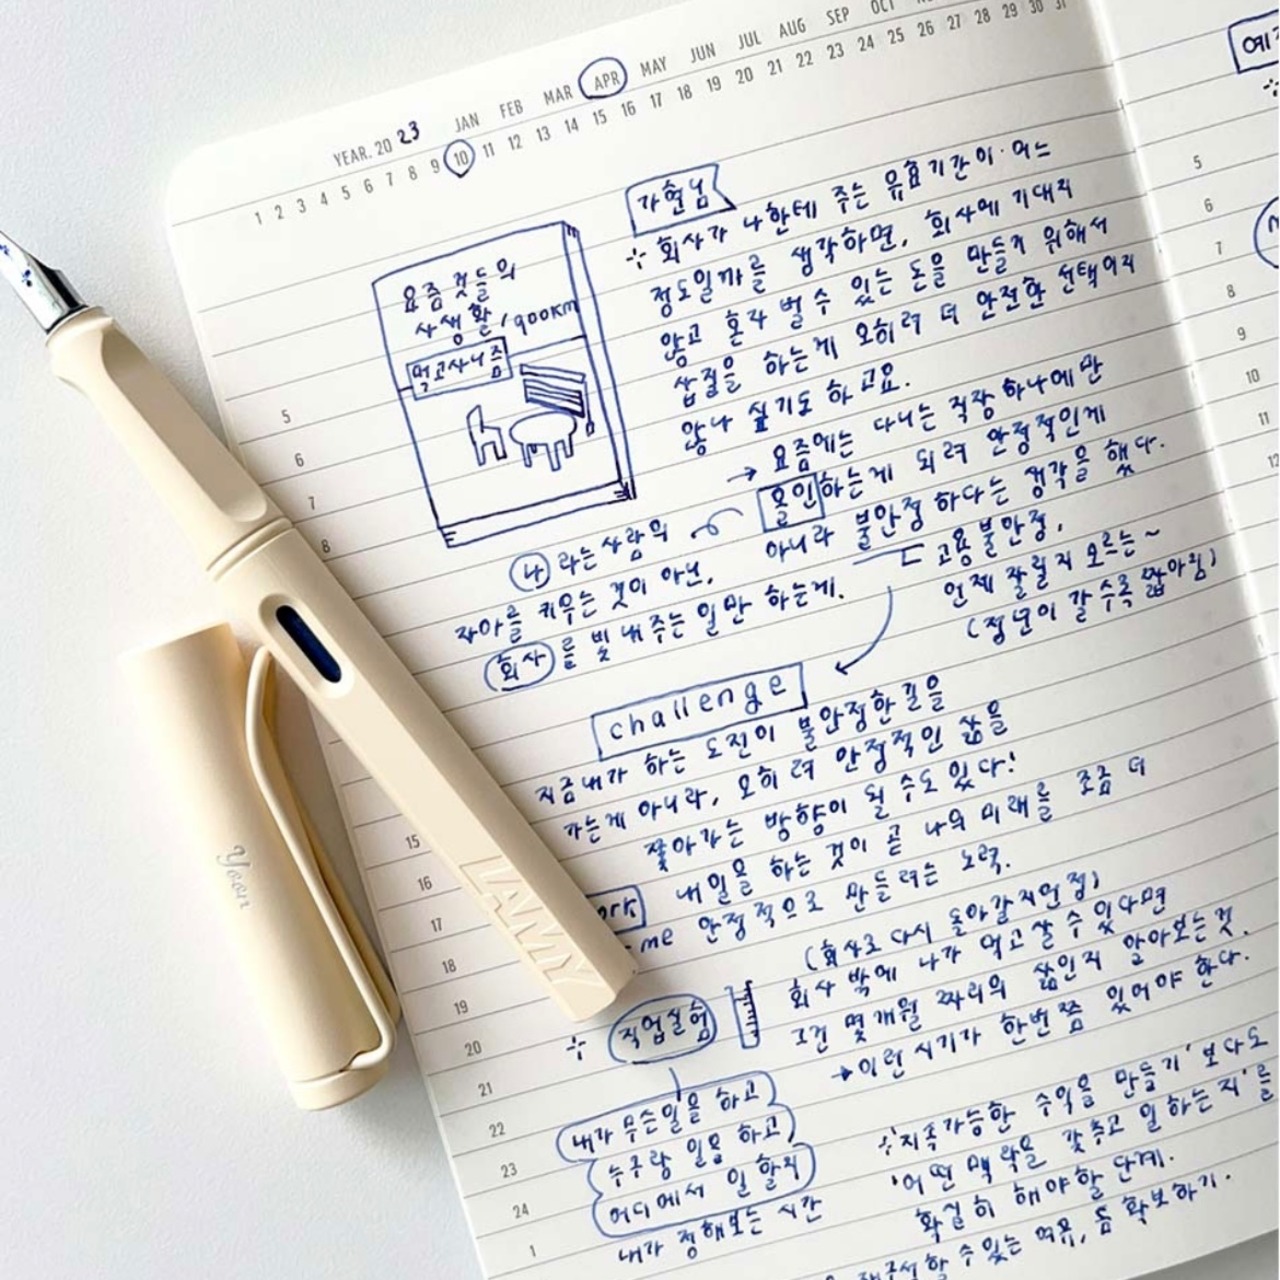 YEAR. 20 23
JAN FEB MAR APR MAY JUN JUL AUG SEP OCT
1 2 3 4 5 6 7 8 9 10 11 12 13 14 15 16 17 18 19 20 21 22 23 24 25 26 27 28 29 30 31
요즘것들의
사생활, 900km
먹고사니즘
가현님
회사가 나한테 주는 유효기간이 어느
정도일까를 생각하면, 회사에 기대지
않고 혼자 벌 수 있는 돈을 만들기 위해서
삽질을 하는게 오히려 더 안전한 선택이지
않나 싶기도 하고요.
→ 요즘에는 다니는 직장 하나에만
올인하는게 되려 안정적인게
아니라 불안정하다는 생각을 했다.
고용불안정,
언제 잘릴지 모르는~
(정년이 갈수록 짧아짐)
나 라는 사람의
자아를 키우는 것이 아닌,
회사를 빛내주는 일만 하는게.
challenge
지금 내가 하는 도전이 불안정한 길을
가는게 아니라, 오히려 안정적인 삶을
찾아가는 방향이 될 수도 있다!
내 일을 하는 것이 곧 나의 미래를 조금 더
me 안정적으로 만들려는 노력.
(회사로 다시 돌아갈지언정)
직업실험
회사 밖에 나가 먹고살 수 있다면
그건 몇개월 짜리의 삶인지 알아보는것.
→ 이런 시기가 한번쯤 있어야 한다.
내가 무슨일을 하고
누구랑 일을 하고,
어디에서 일 할지
내가 정해보는 시간
'지속가능한 수익을 만들기' 보다도
'어떤 맥락을 갖추고 일하는지'를
확실히 해야할 단계.
할 수 있는 여유, 틈 확보하기.
5
6
7
8
15
16
17
18
19
20
21
22
23
24
1
5
6
7
8
9
10
11
12
LAMY
Yoon